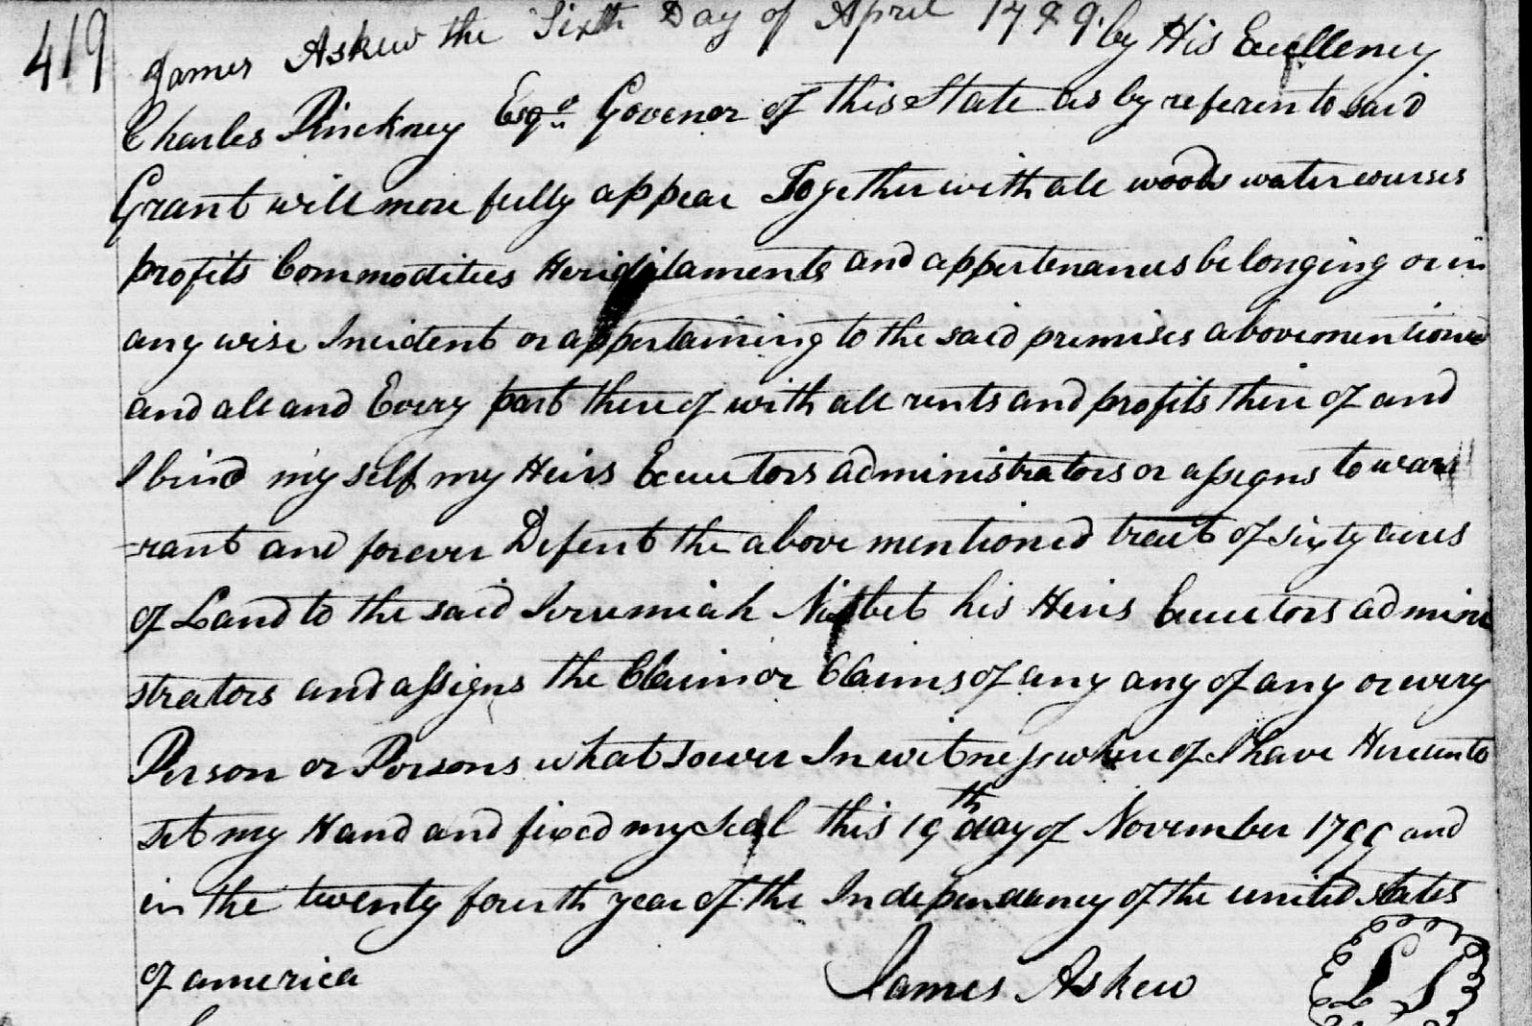 419
James Askew the Sixth Day of April 1789 by His Excellency
Charles Pinckney Esqr. Govenor of this State as by referen to said
Grant will more fully appear Together with all woods watercourses
profits Commodities Heriditaments and appertenances belonging or in
any wise Incident or appertaining to the said premises abovementioned
and all and Every part there of with all rents and profits there of and
I bind my self my Heirs Executors administrators or assigns to warr
=rant and forever Defent the above mentioned tract of sixty acres
of Land to the said Jeremiah Nisbet his Heirs Executors admini
strators and assigns the Claim or Claims of any any of any or every
Person or Persons whatsoever In witness where of I have Hereunto
set my Hand and fixed my Seal this 19th day of November 1799 and
in the twenty fourth year of the Independancy of the united states
of america
James Askew LS